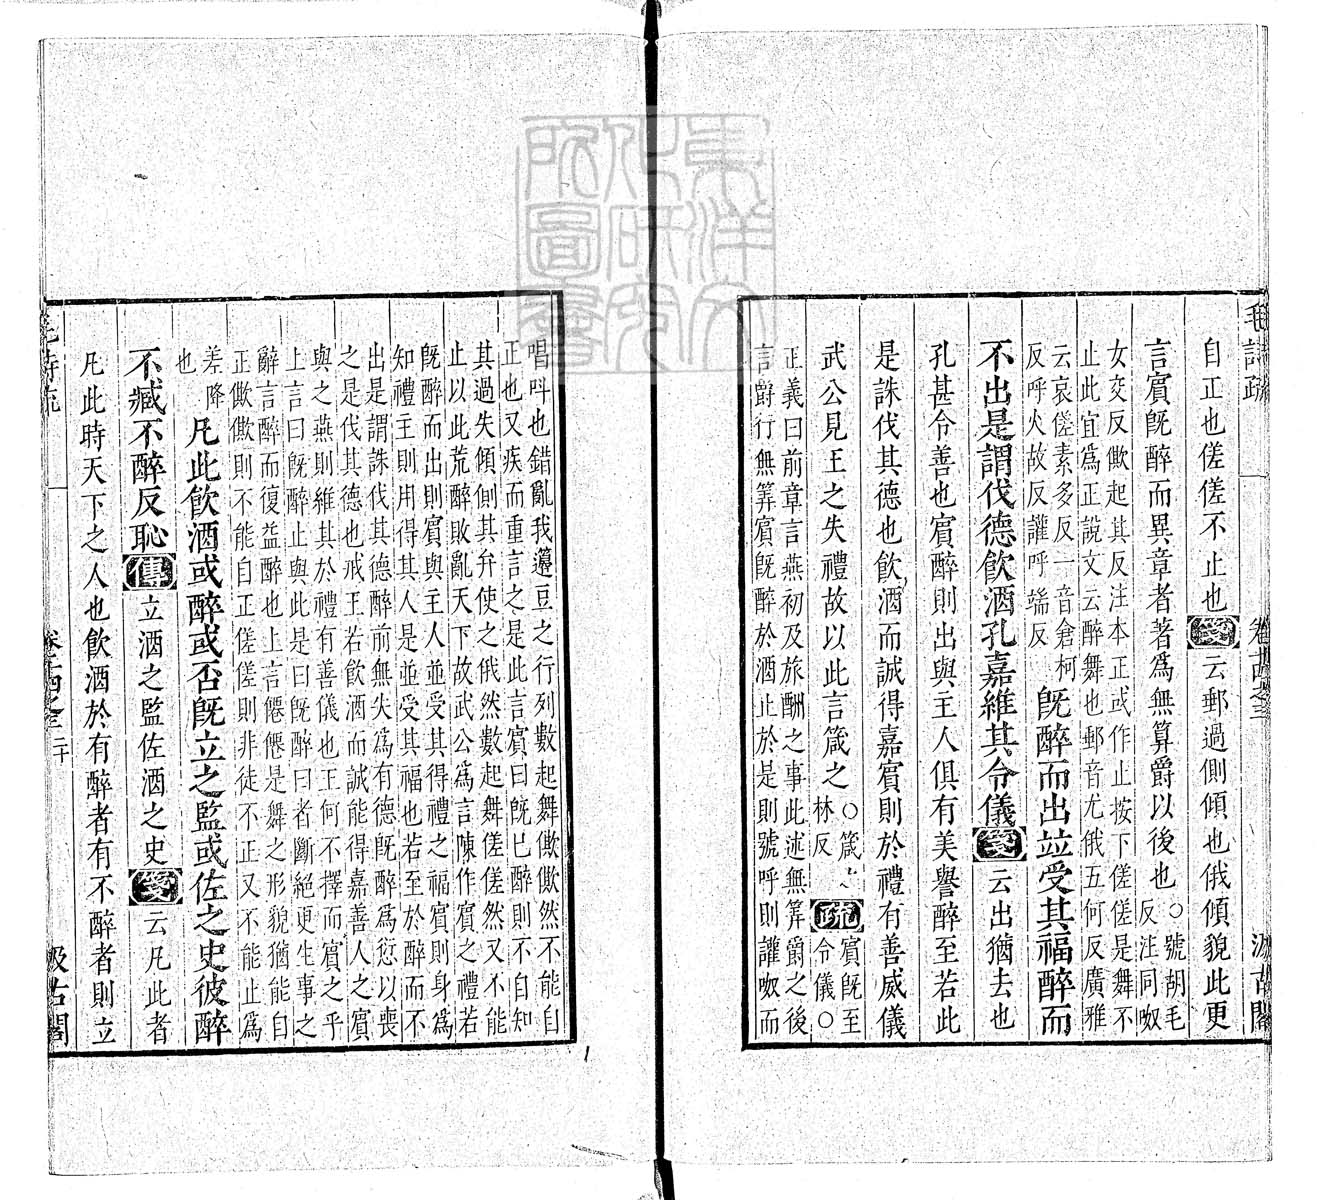 毛詩疏 卷十四之三 汲古閣
自正也傞傞不止也箋云郵過側傾也俄傾貌此更
言賓旣醉而異章者著爲無算爵以後也○號胡毛
反注同呶
女交反僛起其反注本正或作止按下傞傞是舞不
止此宜爲正說文云醉舞也郵音尤俄五何反廣雅
云哀傞素多反一音倉柯
反呼火故反讙呼端反
旣醉而出竝受其福醉而
不出是謂伐德飲酒孔嘉維其令儀箋云出猶去也
孔甚令善也賓醉則出與主人俱有美譽醉至若此
是誅伐其德也飲酒而誠得嘉賓則於禮有善威儀
武公見王之失禮故以此言箴之○箴之
林反
疏賓旣至
令儀○
正義曰前章言燕初及旅酬之事此述無筭爵之後
言爵行無筭賓旣醉於酒止於是則號呼則讙呶而
唱呌也錯亂我籩豆之行列數起舞僛僛然不能自
正也又疾而重言之是此言賓曰旣已醉則不自知
其過失傾側其弁使之俄然數起舞傞傞然又不能
止以此荒醉敗亂天下故武公爲言陳作賓之禮若
旣醉而出則賓與主人並受其得禮之福賓則身爲
知禮主則用得其人是並受其福也若至於醉而不
出是謂誅伐其德醉前無失爲有德旣醉爲愆以喪
之是伐其德也戒王若飲酒而誠能得嘉善人之賓
與之燕則維其於禮有善儀也王何不擇而賓之乎
上言曰旣醉止與此是曰旣醉曰者斷絕更生事之
辭言醉而復益醉也上言僊僊是舞之形貌猶能自
正僛僛則不能自正傞傞則非徒不正又不能止爲
差降
也
凡此飲酒或醉或否旣立之監或佐之史彼醉
不臧不醉反恥傳立酒之監佐酒之史箋云凡此者
凡此時天下之人也飲酒於有醉者有不醉者則立
毛詩疏 卷十四之三 二十 汲古閣
東洋文化研究所圖書